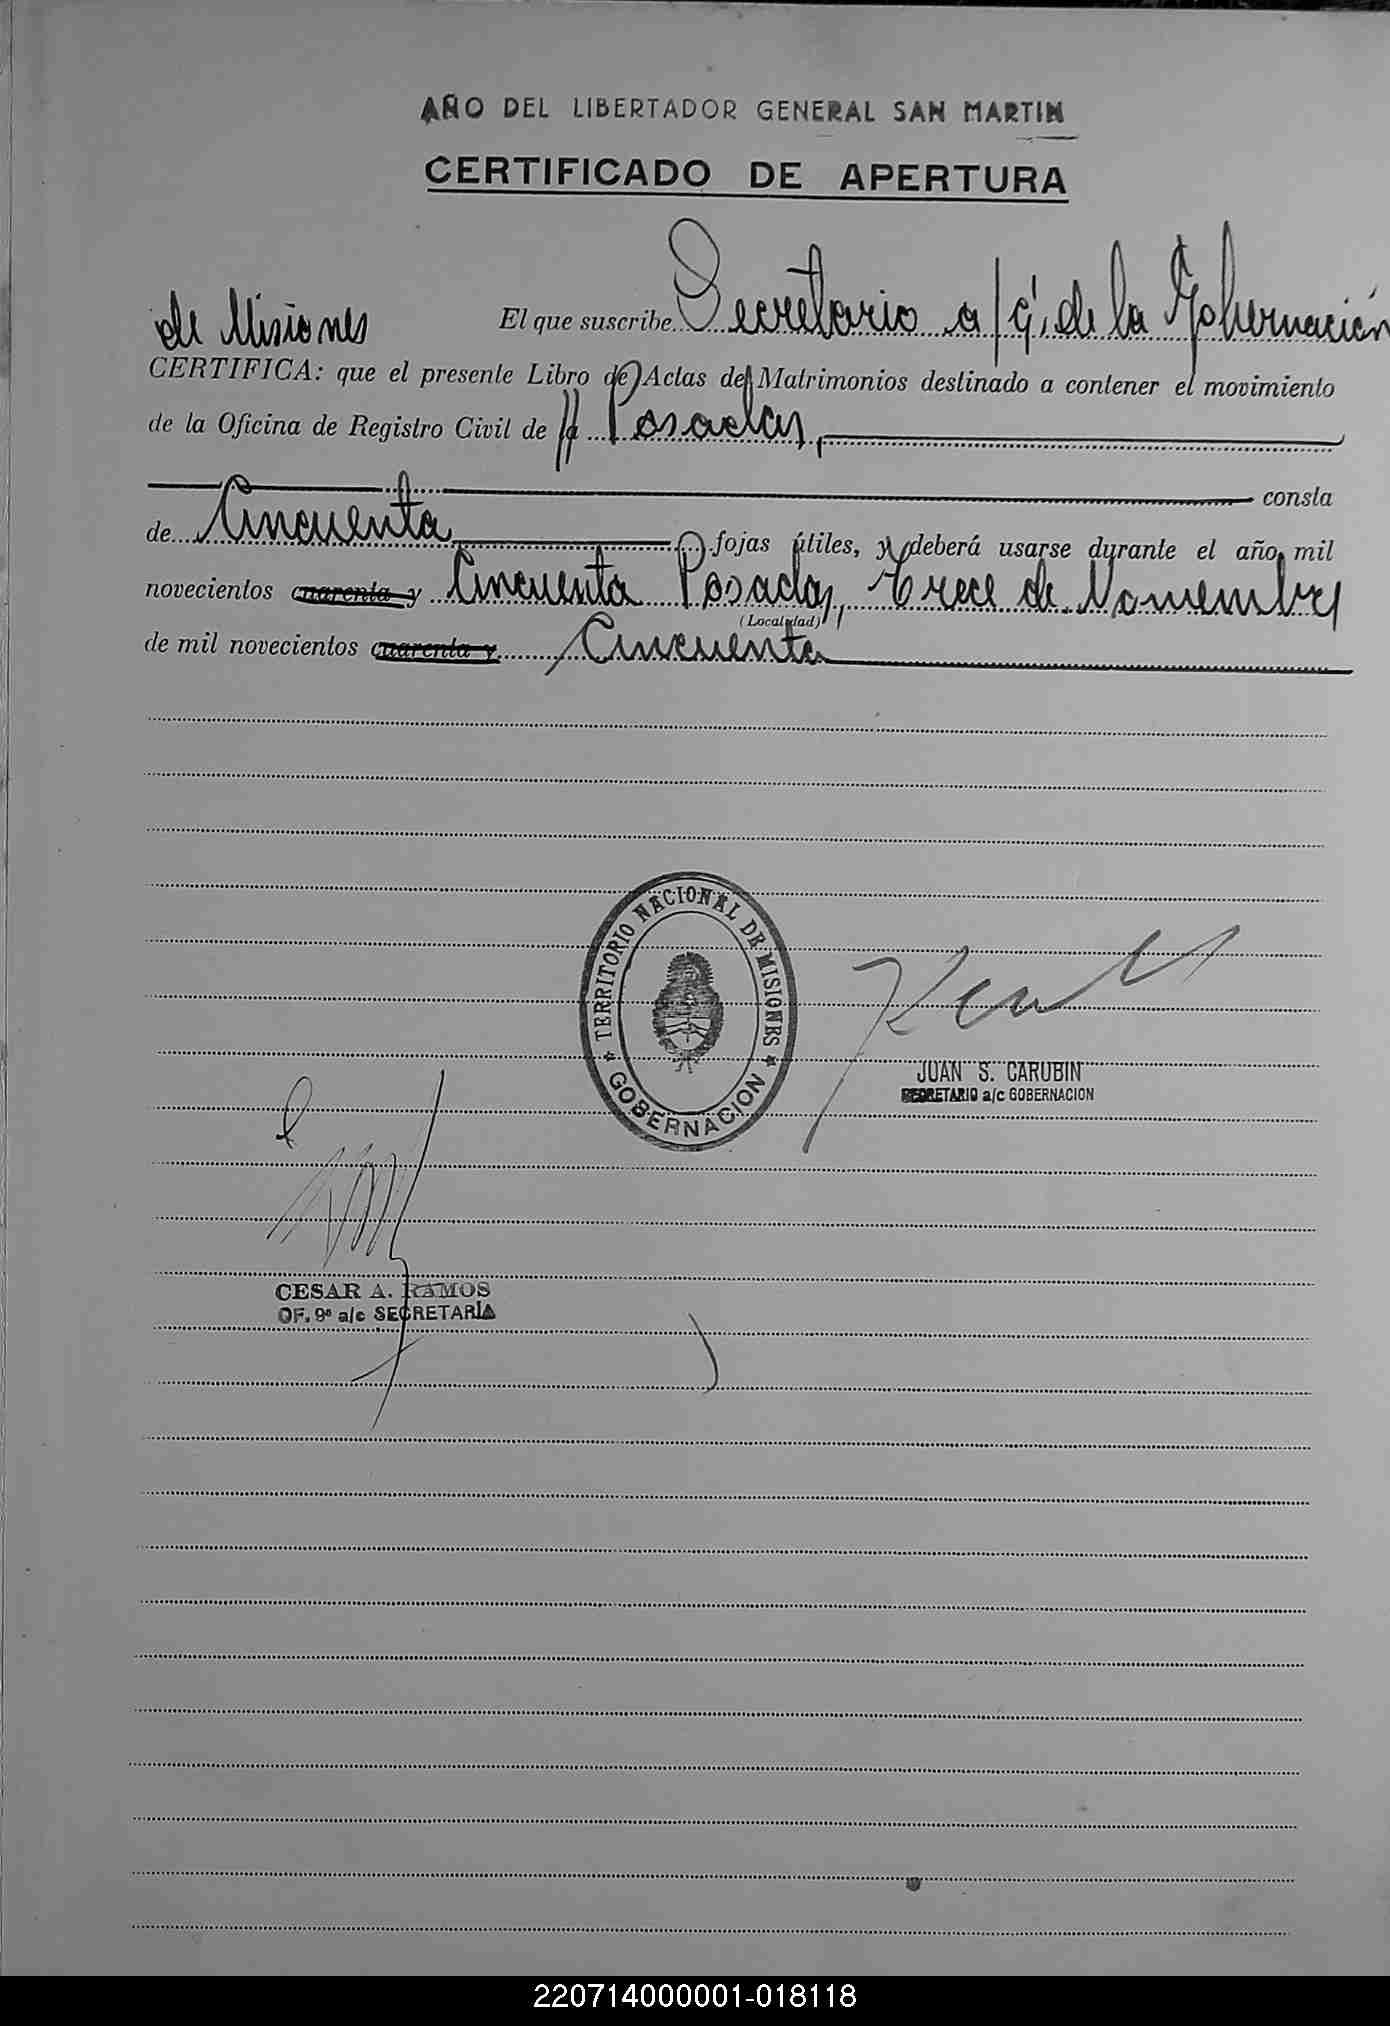 AÑO DEL LIBERTADOR GENERAL SAN MARTIN
CERTIFICADO DE APERTURA
El que suscribe Secretario a/c. de la Gobernación
de Misiones
CERTIFICA: que el presente Libro de Actas de Matrimonios destinado a contener el movimiento
de la Oficina de Registro Civil de la Posadas,
consta
de Cincuenta fojas útiles, y deberá usarse durante el año mil
novecientos cuarenta y Cincuenta Posadas, Trece de Noviembre
(Localidad)
de mil novecientos cuarenta y Cincuenta
TERRITORIO NACIONAL DE MISIONES
GOBERNACION
JUAN S. CARUBIN
SECRETARIO a/c GOBERNACION
CESAR A. RAMOS
OF. 9º a/c SECRETARÍA
220714000001-018118